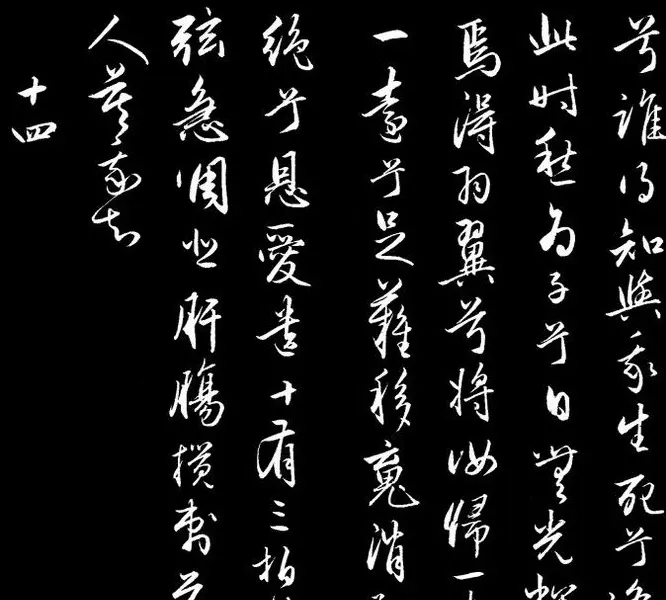 兮誰得知與我生死兮
此時愁為子兮日無光
焉得羽翼兮將汝歸一
一遠兮足難移魂消
絕兮恩愛遺十有三拍
弦急調悲肝腸攪刺兮
人莫我知
十四